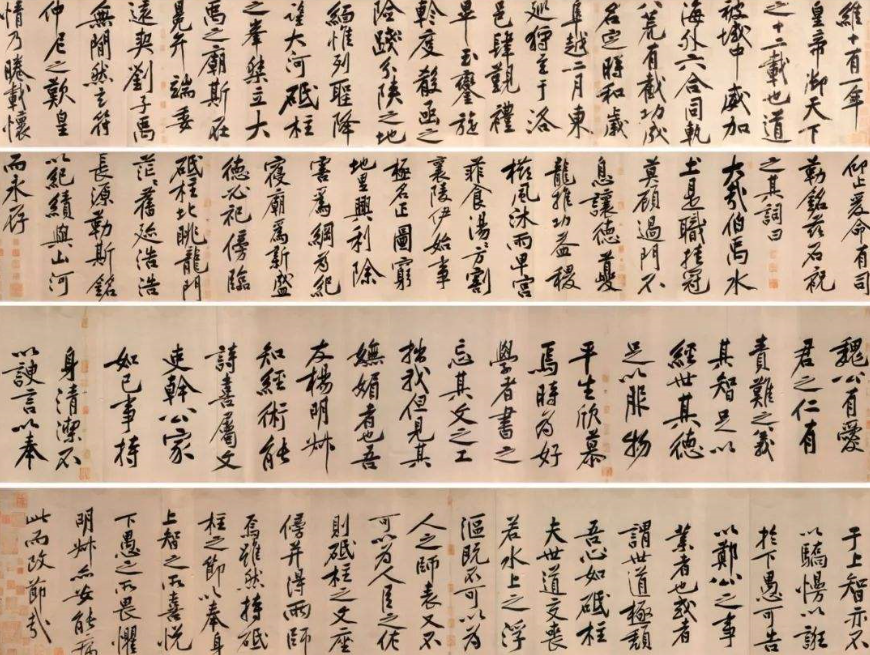 維十有一年
皇帝御天下
之十二載也道
被域中威加
海外六合同軌
八荒有截功成
名定時和歲
阜越二月東
巡狩至于洛
邑肆覲禮
畢玉鑾旋
軫度殽函之
險踐分陝之地
緬惟列聖降
望大河砥柱
之峯桀立大
禹之廟斯在
冕弁端委
遠契劉子禹
無間然玄符
仲尼之歎皇
情乃睠載懷
仰止爰命有司
勒銘茲石祝
之其詞曰
大哉伯禹水
土是職挂冠
莫顧過門不
息讓德夔
龍推功益稷
櫛風沐雨卑宮
菲食湯湯方割
襄陵伊始事
極名正圖窮
地里興利除
害為綱為紀
寢廟為新盛
德必祀傍臨
砥柱北眺龍門
茫茫舊迹浩浩
長源勒斯銘
以紀績與山河
而永存
魏公有愛
君之仁有
責難之義
其智足以
經世其德
足以服物
平生欣慕
焉時為好
學者書之
忘其文之工
拙我但見其
嫵媚者也吾
友楊明叔
知經術能
詩喜屬文
吏幹公家
如己事持
身清潔不
以諛言以奉
于上智亦不
以驕慢以誑
於下愚可告
以鄭公之事
業者也或者
謂世道極頹
吾心如砥柱
夫世道交喪
若水上之浮
漚既不可以為
人之師表又不
可以為人臣之佐
則砥柱之文座
傍并得兩師
焉雖然持砥
柱之節以奉身
上智之所喜悅
下愚之所畏懼
明叔亦安能病
此而改節哉